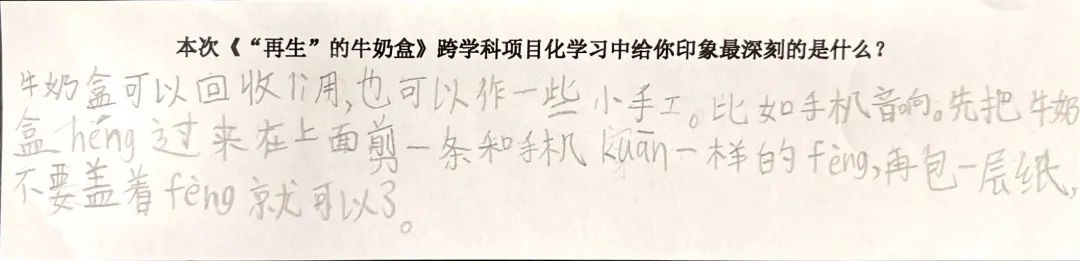 本次《“再生”的牛奶盒》跨学科项目化学习中给你印象最深刻的是什么？
牛奶盒可以回收利用,也可以作一些小手工。比如手机音响。先把牛奶
盒héng过来在上面剪一条和手机kuān一样的fèng,再包一层纸,
不要盖着fèng就可以了。